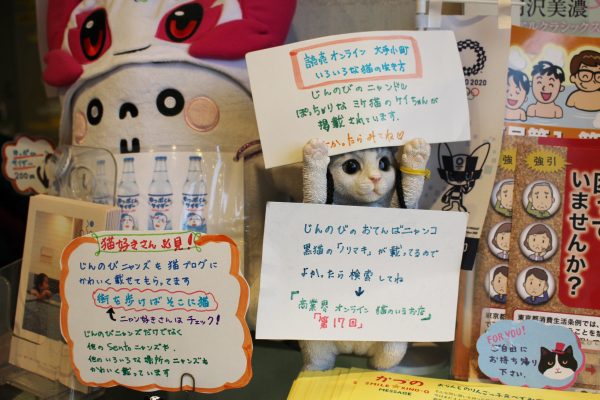 読売オンライン 大手小町
いろいろな猫の生き方
じんのびのニャンドル
ぽっちゃりな ミケ猫のケイちゃんが
掲載されています。
かったらみてね♡
じんのびの おてんばニャンコ
黒猫の「ノリマキ」が載ってるので
よかったら検索してね
↓
『商業界 オンライン 猫のいるお店』
「第17回」
猫好きさん必見!
じんのびニャンズを猫ブログに
かわいく載せてもらってます
街を歩けばそこに猫
ニャン好きさんはチェック!
じんのびニャンズだけでなく
他のSentoニャンズや、
他のいろいろな場所のニャンズも
かわいく載っています
200円
2020
強引
困って
いませんか?
東京都消費生活条例では、
FOR YOU!
ご自由に
お持ち帰り
下さい。
かつの
SMILE
MESSAGE